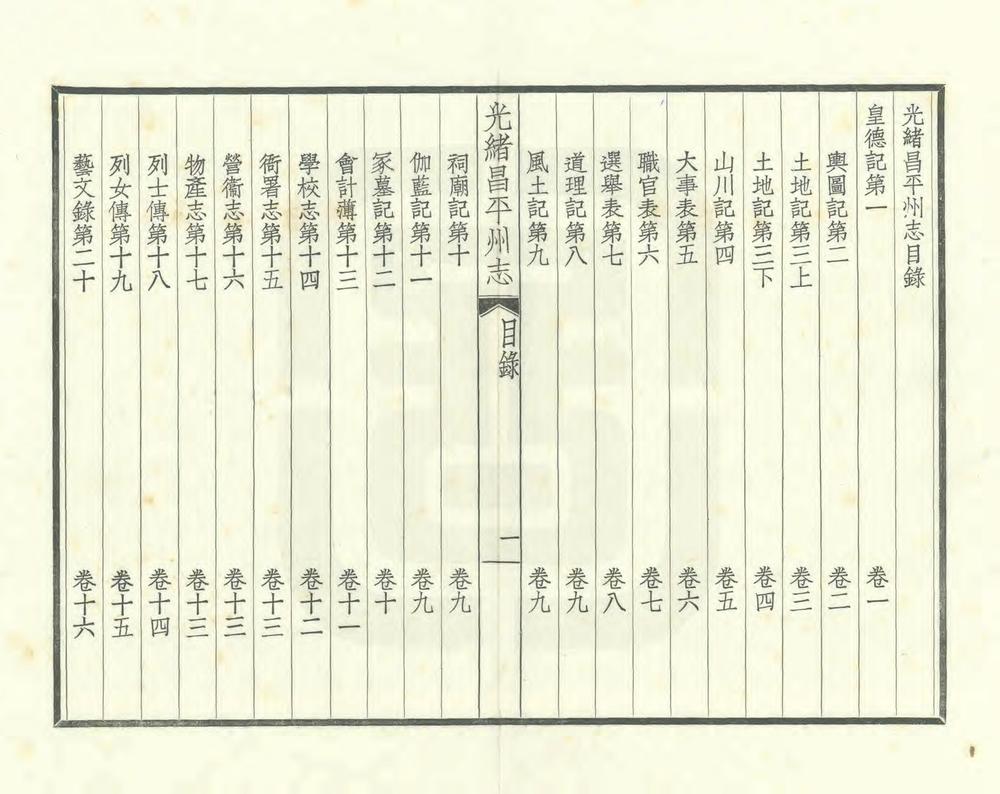 光緒昌平州志目錄
皇德記第一 卷一
輿圖記第二 卷二
土地記第三上 卷三
土地記第三下 卷四
山川記第四 卷五
大事表第五 卷六
職官表第六 卷七
選舉表第七 卷八
道理記第八 卷九
風土記第九 卷九
光緒昌平州志 目錄 一
祠廟記第十 卷九
伽藍記第十一 卷九
冢墓記第十二 卷十
會計薄第十三 卷十一
學校志第十四 卷十二
衙署志第十五 卷十三
營衞志第十六 卷十三
物產志第十七 卷十三
列士傳第十八 卷十四
列女傳第十九 卷十五
藝文錄第二十 卷十六